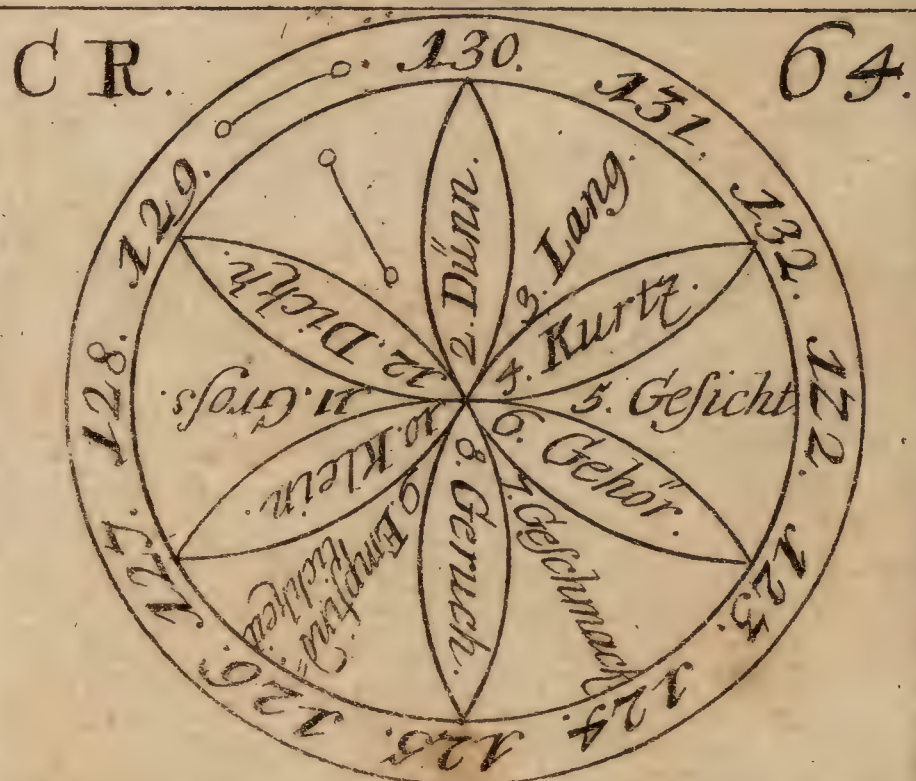 CR.
64.
130.
131.
132.
122.
123.
124.
125.
126.
127.
128.
129.
2. Dünn.
3. Lang.
4. Kurtz.
5. Geſicht
6. Gehör.
7. Geſchmack
8. Geruch.
9. Empfind=
lichkeit.
10. Klein.
11. Groſs.
12. Dickh.